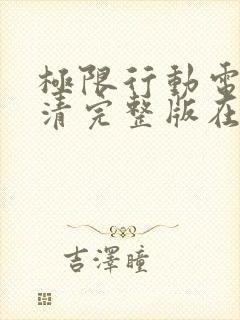 極限行動電
清完整版在
吉澤瞳